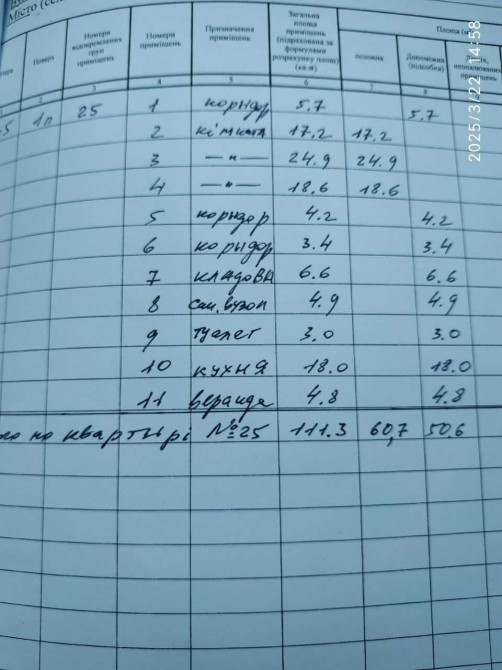 Місто (се
Поверх
Номери відокремлених груп приміщень
Номери приміщень
Призначення приміщень
Загальна площа приміщень (підрахована за формулами розрахунку площ) (кв.м)
Площа (
основна
Допоміжна (підсобна)
2 3 4 5 6 7 8
5 1п 25 1 коридор 5,7 5,7
2 кімната 17,2 17,2
3 —"— 24.9 24.9
4 —"— 18,6 18.6
5 коридор 4.2 4.2
6 коридор 3.4 3.4
7 кладова 6.6 6.6
8 сан.вузол 4.9 4.9
9 туалет 3,0 3.0
10 кухня 18.0 18.0
11 веранда 4.8 4.8
по квартирі №25 111.3 60,7 50.6
2025/3/22 14:58